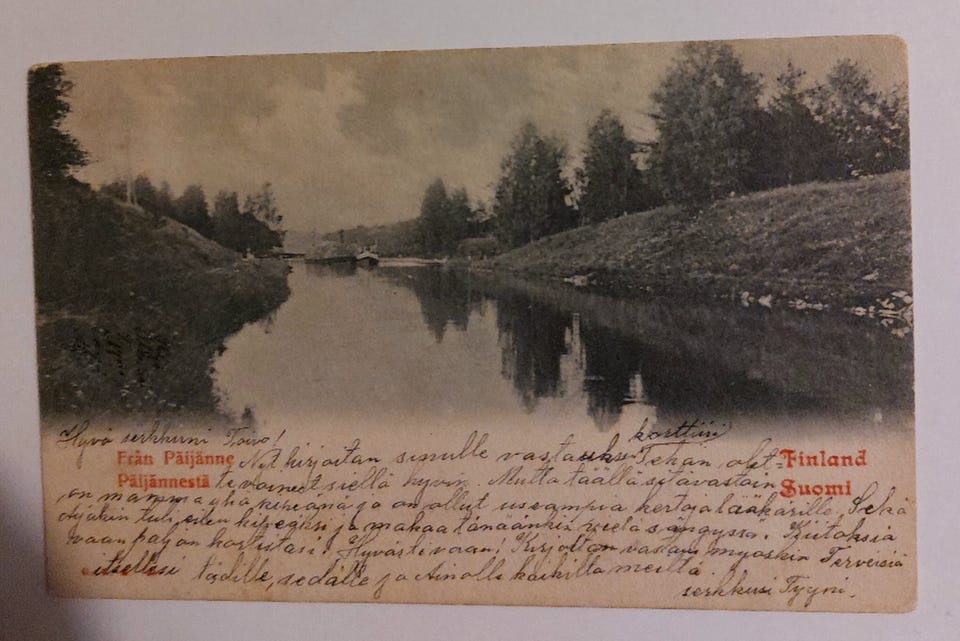 Hyvä serkkuni Toivo!
korttiisi
Nyt kirjoitan sinulle vastauksen Tehän olet-
Från Päijänne
Päijännestä
Finland
Suomi
te voineet siellä hyvin. Mutta täällä sitävastoin
on mamma yhä kipeänä ja on ollut useampia kertoja lääkärillä. Sekä
tuli eilen kipeäksi ja makaa tänäänkin vielä sängyssä. Kiitoksia
vaan paljon kortistasi! Hyvästi vaan! Kirjoitan vastaan myöskin Terveisiä
itsellesi tädille, sedälle ja Ainolle kaikilta meiltä.
serkkusi Tyyni.